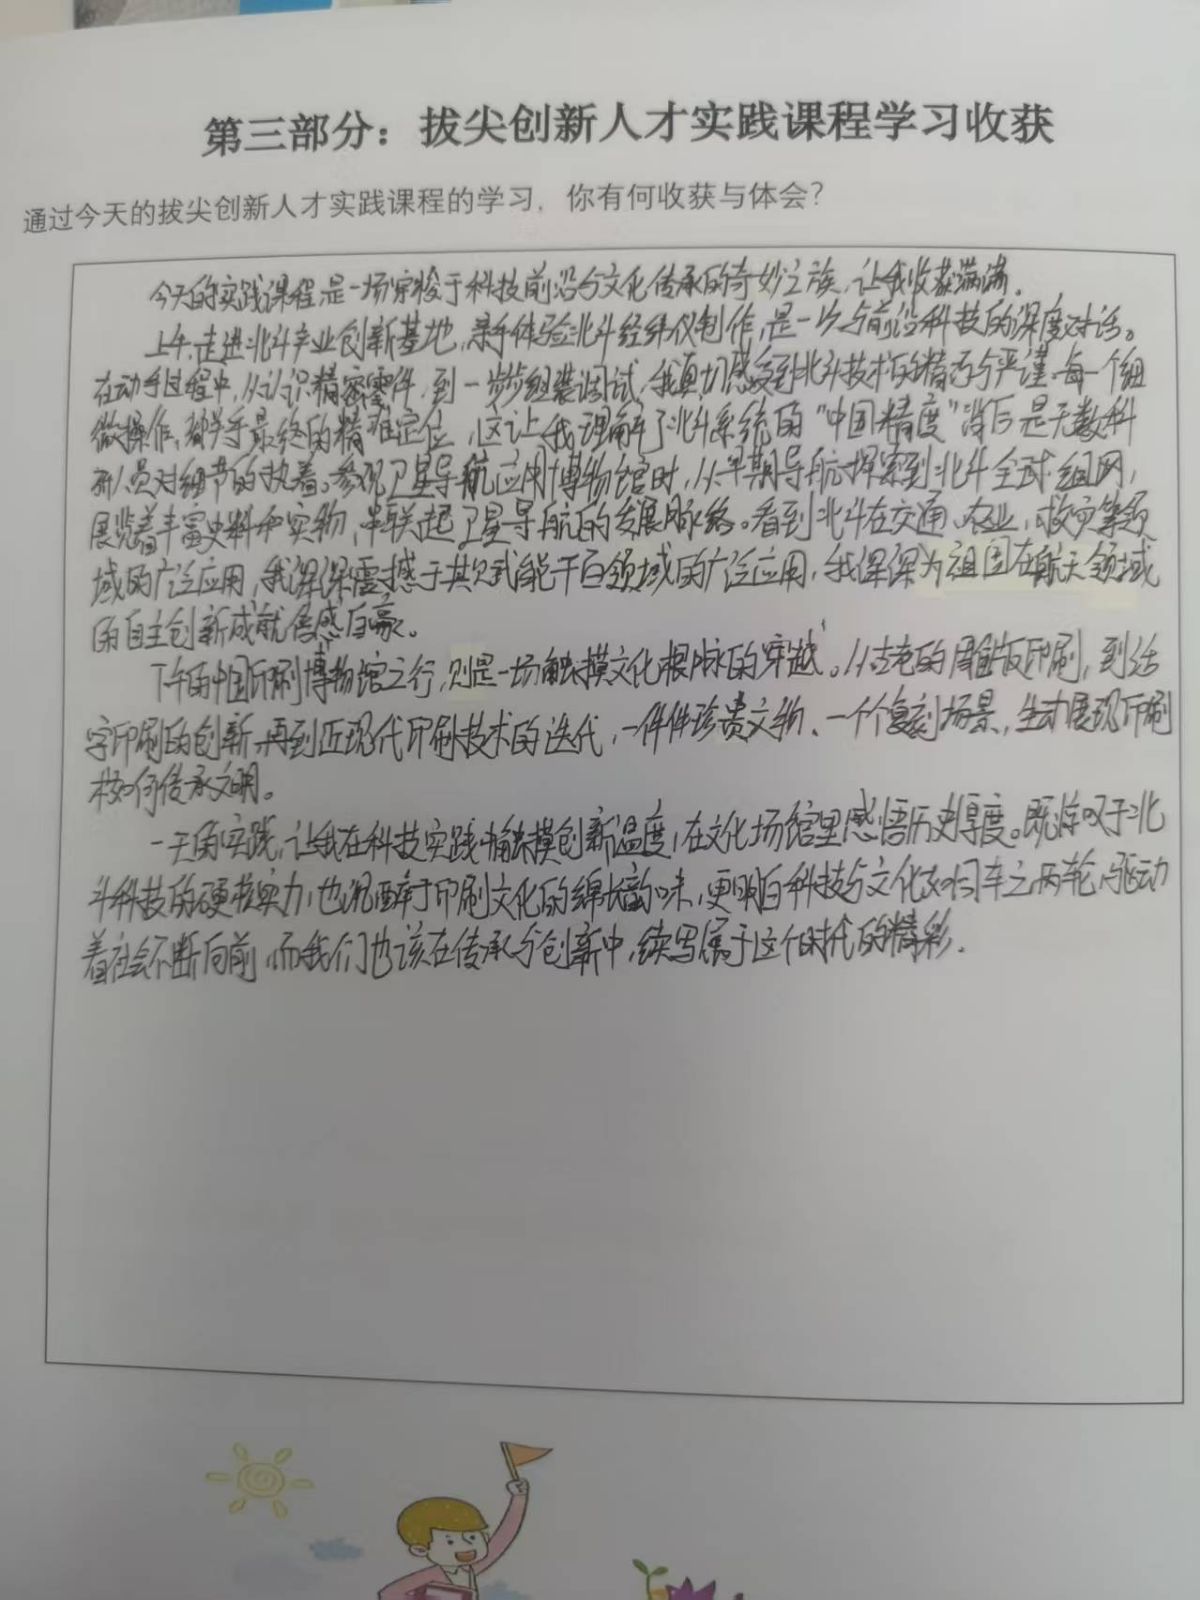 第三部分：拔尖创新人才实践课程学习收获
通过今天的拔尖创新人才实践课程的学习，你有何收获与体会？
今天的实践课程是一场穿梭于科技前沿与文化传承的奇妙之旅，让我收获满满。
上午，走进北斗产业创新基地，亲手体验北斗经纬仪制作，是一次与前沿科技的深度对话。
在动手过程中，从认识精密零件，到一步步组装调试，我真切感受到北斗技术的精巧与严谨。每一个细
微操作，都关乎最终的精准定位，这让我理解了北斗系统的“中国精度”背后是无数科
研人员对细节的执着。参观卫星导航应用博物馆时，从早期导航探索到北斗全球组网，
展览着丰富史料和实物，串联起卫星导航的发展脉络。看到北斗在交通、农业，救灾等领
域的广泛应用，我深深震撼于其赋能千百领域的广泛应用，我深深为祖国在航天领域
的自主创新成就倍感自豪。
下午的中国印刷博物馆之行，则是一场触摸文化根脉的穿越。从古老的雕版印刷，到活
字印刷的创新，再到近现代印刷技术的迭代，一件件珍贵文物、一个个复刻场景，生动展现印刷
术如何传承文明。
一天的实践，让我在科技实践中触摸创新温度，在文化场馆里感悟历史厚度。既惊叹于北
斗科技的硬核实力，也沉醉于印刷文化的绵长韵味，更明白科技与文化如同车之两轮，驱动
着社会不断向前，而我们也该在传承与创新中，续写属于这个时代的精彩。